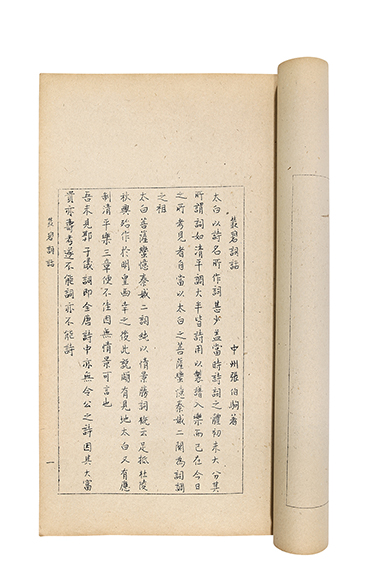 叢碧詞話　中州張伯駒著
太白以詩名所作詞甚少蓋當時詩詞之體初未大分其
所謂詞如清平調大半皆詩用以製譜入樂而已在今日
之所考見者自當以太白之菩薩蠻憶秦娥二闋為詞調
之祖
太白菩薩蠻憶秦娥二詞純以情景勝詞概云是抵杜陵
秋興疑作於明皇西幸之後此說頗有見地太白又有應
制清平樂三章便不佳因無情景可言也
吾未見郭子儀詞即全唐詩中亦無令公之詩因其大富
貴亦壽考遂不能詞亦不能詩
叢碧詞話
一